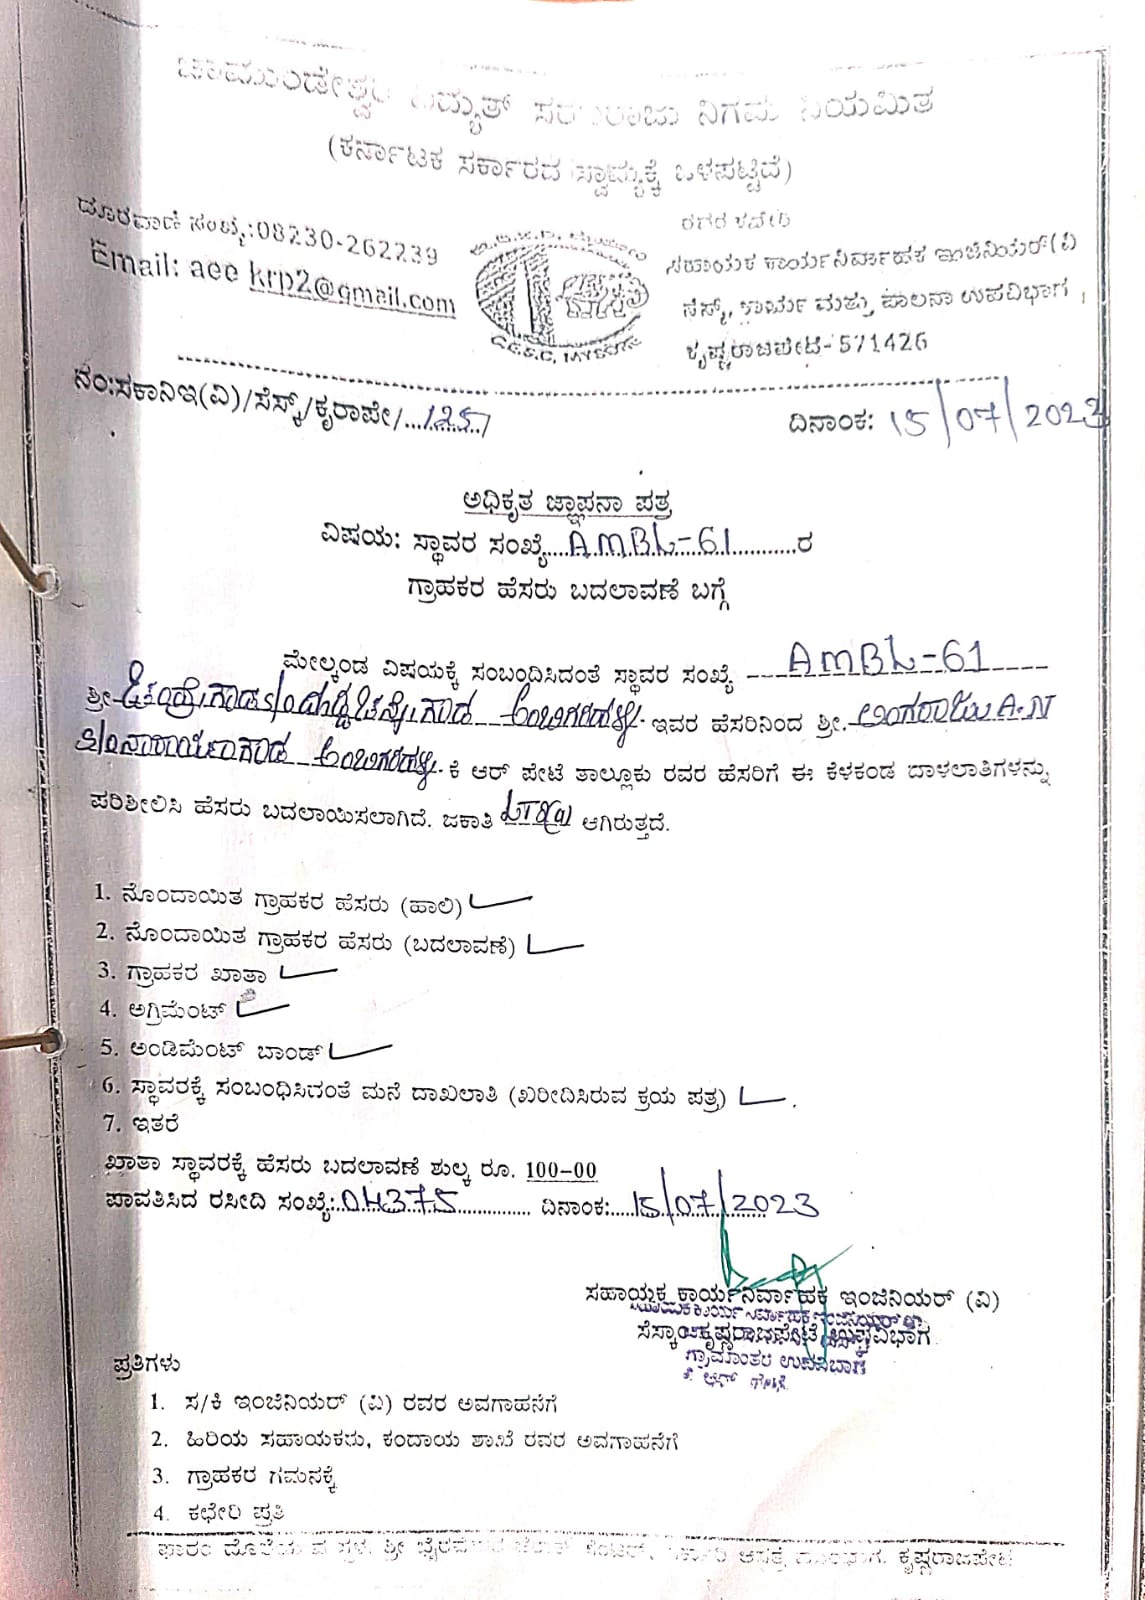 ಚಾಮುಂಡೇಶ್ವರಿ ವಿದ್ಯುತ್ ಸರಬರಾಜು ನಿಗಮ ನಿಯಮಿತ
(ಕರ್ನಾಟಕ ಸರ್ಕಾರದ ಸ್ವಾಮ್ಯಕ್ಕೆ ಒಳಪಟ್ಟಿದೆ)
ದೂರವಾಣಿ ಸಂಖ್ಯೆ:08230-262239
Email: aee krp2@gmail.com
C.E.S.C, MYSORE
ಸಹಾಯಕ ಕಾರ್ಯನಿರ್ವಾಹಕ ಇಂಜಿನಿಯರ್(ವಿ
ಸೆಸ್ಕ್, ಕಾರ್ಯ ಮತ್ತು ಪಾಲನಾ ಉಪವಿಭಾಗ,
ಕೃಷ್ಣರಾಜಪೇಟೆ-571426
ನಂ:ಸಕಾನಿಇ(ವಿ)/ಸೆಸ್ಕ್/ಕೃರಾಪೇ/...125/
ದಿನಾಂಕ: 15/07/2023
ಅಧಿಕೃತ ಜ್ಞಾಪನಾ ಪತ್ರ
ವಿಷಯ: ಸ್ಥಾವರ ಸಂಖ್ಯೆ....AMBL-61...........ರ
ಗ್ರಾಹಕರ ಹೆಸರು ಬದಲಾವಣೆ ಬಗ್ಗೆ
ಮೇಲ್ಕಂಡ ವಿಷಯಕ್ಕೆ ಸಂಬಂದಿಸಿದಂತೆ ಸ್ಥಾವರ ಸಂಖ್ಯೆ AMBL-61
ಶ್ರೀ S/o ಅಂಬಿಗರಹಳ್ಳಿ. ಇವರ ಹೆಸರಿನಿಂದ ಶ್ರೀ. A.N
S/o ನಾರಾಯಣಗೌಡ ಅಂಬಿಗರಹಳ್ಳಿ. ಕೆ ಆರ್ ಪೇಟೆ ತಾಲ್ಲೂಕು ರವರ ಹೆಸರಿಗೆ ಈ ಕೆಳಕಂಡ ದಾಳಲಾತಿಗಳನ್ನು
ಪರಿಶೀಲಿಸಿ ಹೆಸರು ಬದಲಾಯಿಸಲಾಗಿದೆ. ಜಕಾತಿ ಆಗಿರುತ್ತದೆ.
1. ನೊಂದಾಯಿತ ಗ್ರಾಹಕರ ಹೆಸರು (ಹಾಲಿ)
2. ನೊಂದಾಯಿತ ಗ್ರಾಹಕರ ಹೆಸರು (ಬದಲಾವಣೆ)
3. ಗ್ರಾಹಕರ ಖಾತಾ
4. ಅಗ್ರಿಮೆಂಟ್
5. ಅಂಡಿಮೆಂಟ್ ಬಾಂಡ್
6. ಸ್ಥಾವರಕ್ಕೆ ಸಂಬಂಧಿಸಿದಂತೆ ಮನೆ ದಾಖಲಾತಿ (ಖರೀದಿಸಿರುವ ಕ್ರಯ ಪತ್ರ) .
7. ಇತರೆ
ಖಾತಾ ಸ್ಥಾವರಕ್ಕೆ ಹೆಸರು ಬದಲಾವಣೆ ಶುಲ್ಕ ರೂ. 100-00
ಪಾವತಿಸಿದ ರಸೀದಿ ಸಂಖ್ಯೆ:.04375............... ದಿನಾಂಕ:....15/07/2023
ಸಹಾಯಕ ಕಾರ್ಯನಿರ್ವಾಹಕ ಇಂಜಿನಿಯರ್ (ವಿ)
ಸೆಸ್ಕಾಂ ಕೃಷ್ಣರಾಜಪೇಟೆ ಉಪವಿಭಾಗ
ಗ್ರಾಮಾಂತರ ಉಪವಿಭಾಗ
ಕೆ. ಆರ್. ಪೇಟೆ
ಪ್ರತಿಗಳು
1. ಸ/ಕಿ ಇಂಜಿನಿಯರ್ (ವಿ) ರವರ ಅವಗಾಹನೆಗೆ
2. ಹಿರಿಯ ಸಹಾಯಕರು, ಕಂದಾಯ ಶಾಖೆ ರವರ ಅವಗಾಹನೆಗೆ
3. ಗ್ರಾಹಕರ ಗಮನಕ್ಕೆ
4. ಕಛೇರಿ ಪ್ರತಿ
ಕೃಷ್ಣರಾಜಪೇಟೆ